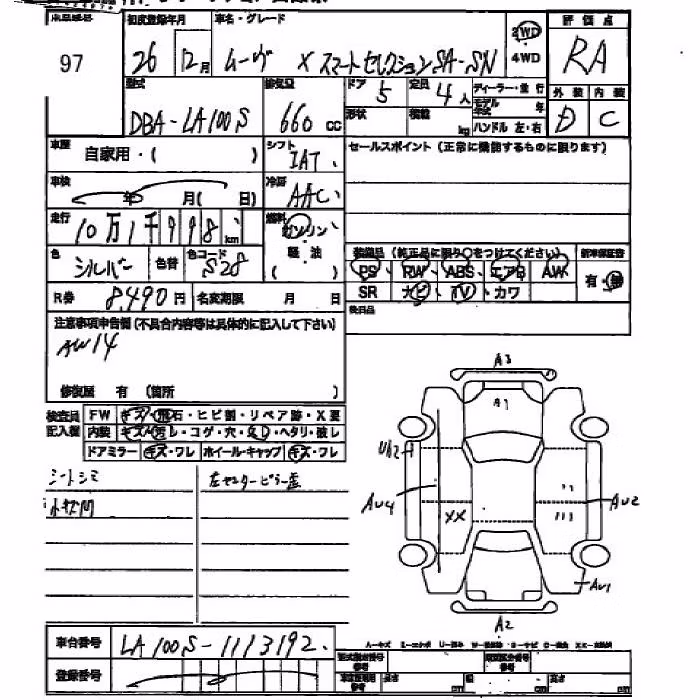 97
初度登録年月 車名・グレード 評価点
26 12月 ムーヴ X スマートセレクションSA-SN 2WD 4WD RA
型式 排気量 ドア 定員 ディーラー・並行 外装 内装
DBA-LA100S 660 cc 5 4人 モデル年式 年 D C
形状 積載 kg ハンドル 左・右
車歴 自家用・( ) シフト IAT セールスポイント(正常に機能するものに限ります)
車検 年 月( 日) 冷房 AAC
走行 10万1千998 km 燃料 ガソリン
軽油
( )
色 シルバー 色替 色コード S28
装備品(純正品に限り○をつけてください) 新車保証書
PS RW ABS エアB AW 有・無
SR ナビ TV カワ
R券 8,490円 名変期限 月 日 後日品
注意事項申告欄(不具合内容等は具体的に記入して下さい)
AW14
修復歴 有 (箇所 )
検査員記入欄 FW キズ・飛石・ヒビ割・リペア跡・X要
内装 キズ・汚レ・コゲ・穴・ヘタリ・破レ
ドアミラー キズ・ワレ ホイール・キャップ キズ・ワレ
シートシミ 左センターピラー歪
A3
A1
AU4
XX
AU2
AU1
A2
車台番号 LA100S-1113192
登録番号
型式指定番号 類別区分番号
長さ cm 幅 cm 高さ cm